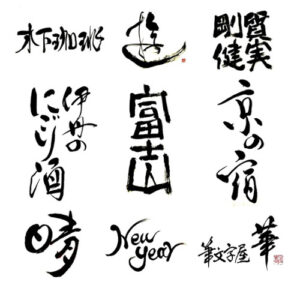 木下珈琲
遊
質実
剛健
伊丹の
にごり酒
富士山
京の宿
晴
New
Year
華
筆文字屋